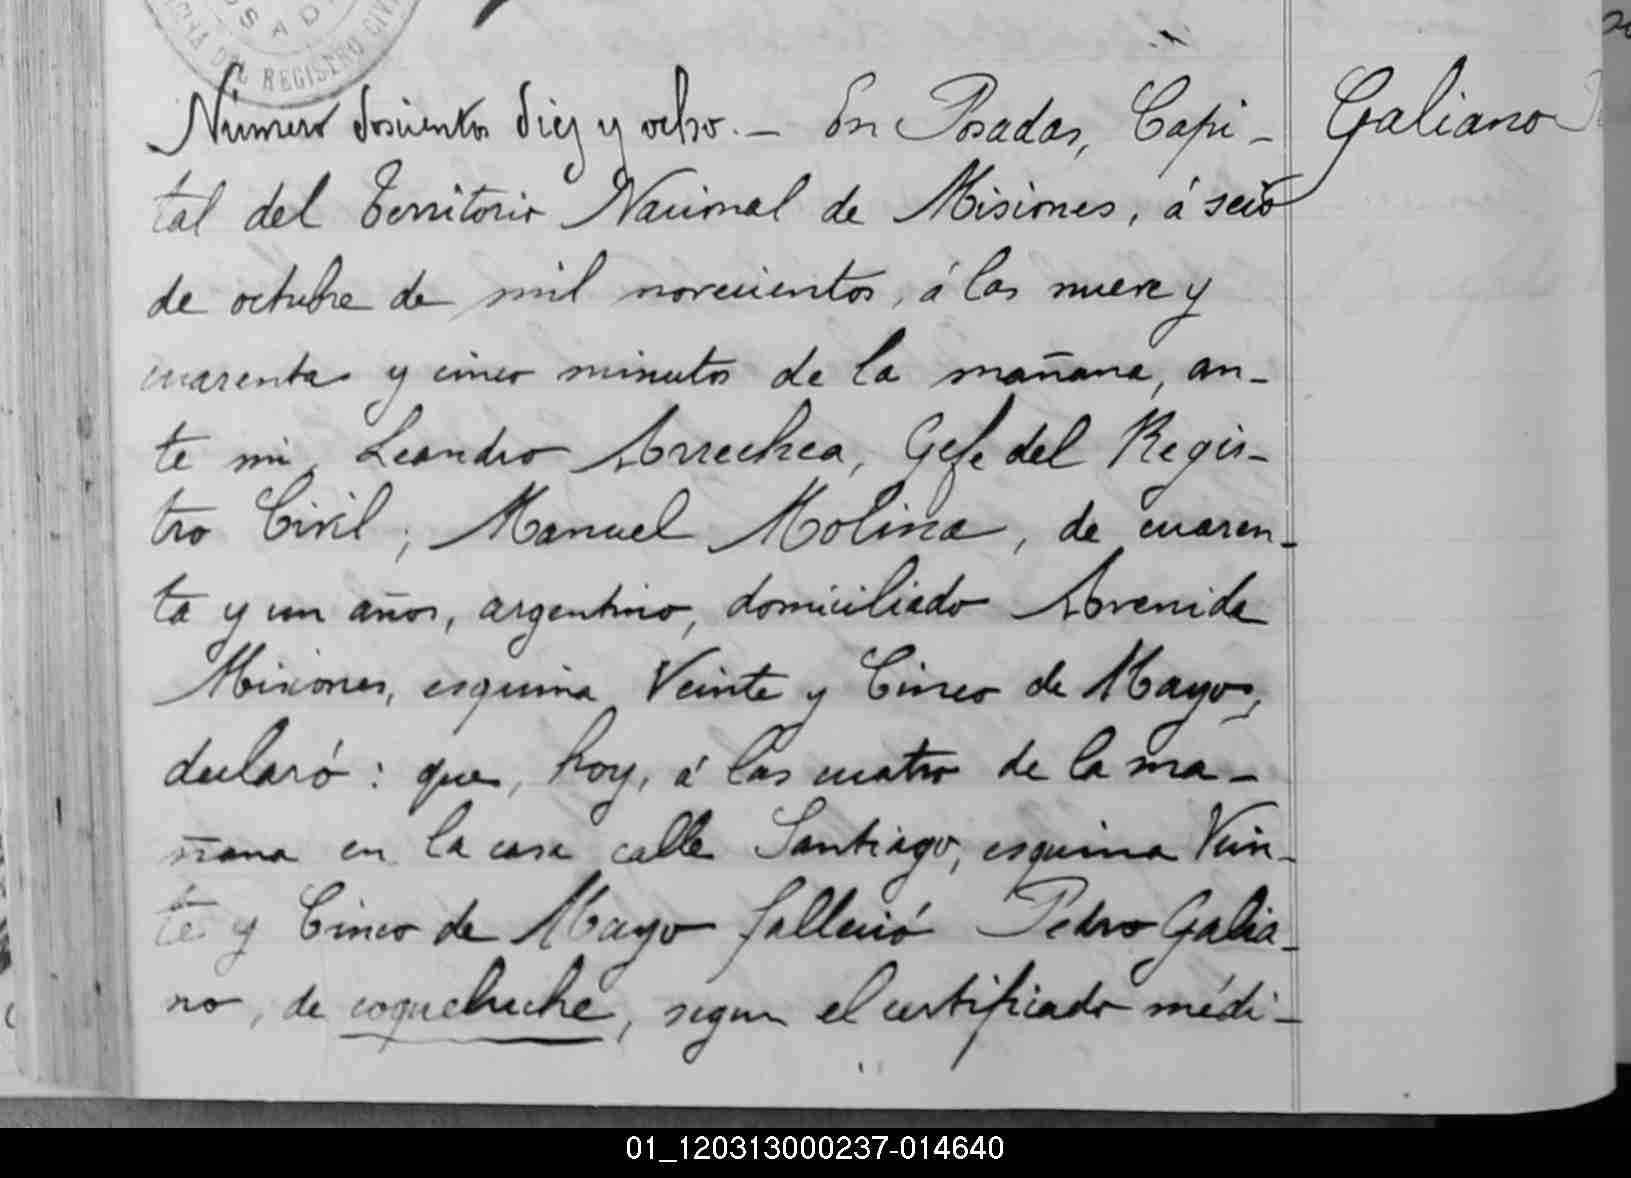 OFICINA DEL REGISTRO CIVIL
POSADAS
Número dosientos diez y ocho. — En Posadas, Capi-
Galiano
tal del Territorio Nacional de Misiones, á seis
de octubre de mil novecientos, á las nueve y
cuarenta y cinco minutos de la mañana, an-
te mi, Leandro Arrechea, Gefe del Regis-
tro Civil; Manuel Molina, de cuaren-
ta y un años, argentino, domiciliado Avenida
Misiones, esquina Veinte y Cinco de Mayo,
declaró: que, hoy, á las cuatro de la ma-
ñana en la casa calle Santiago, esquina Vein-
te y Cinco de Mayo falleció Pedro Galia-
no, de coqueluche, segun el certificado médi-
01_120313000237-014640